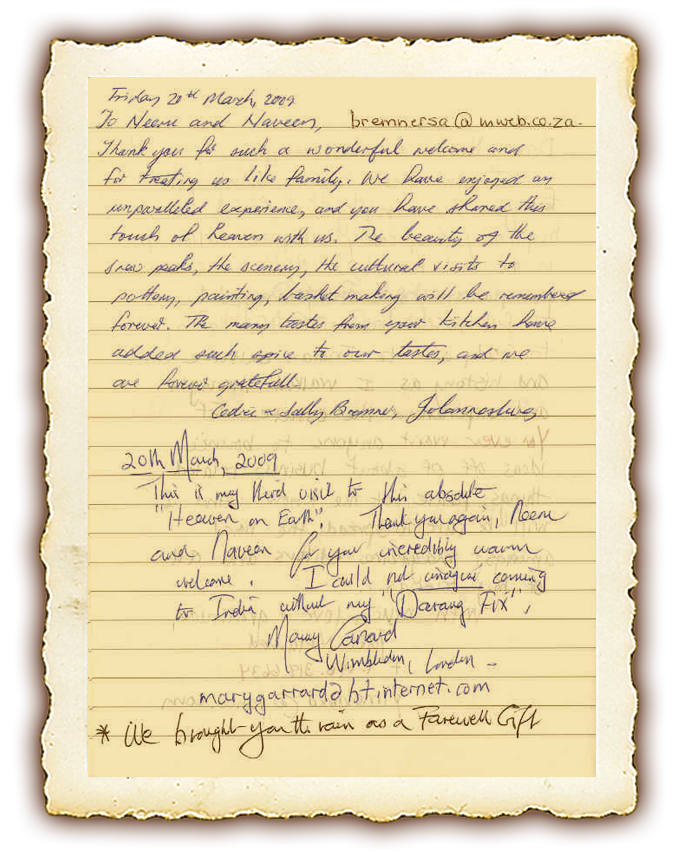 Friday 20th March, 2009
To Neeru and Naveen, bremnersa@mweb.co.za.
Thank you for such a wonderful welcome and
for treating us like family. We have enjoyed an
unparalleled experience, and you have shared this
touch of heaven with us. The beauty of the
snow peaks, the scenery, the cultural visits to
pottery, painting, basket making will be remembered
forever. The many tastes from your kitchen have
added such spice to our tastes, and we
are forever gratefull.
Cedric & Sally Bremner, Johannesburg
20th March, 2009
This is my third visit to this absolute
"Heaven on Earth". Thank you again, Neeru
and Naveen for your incredibly warm
welcome. I could not imagine coming
to India without my "Darang Fix",
Mary Garrard
Wimbledon, London -
marygarrard@btinternet.com
* We brought you th rain as a Farewell Gift